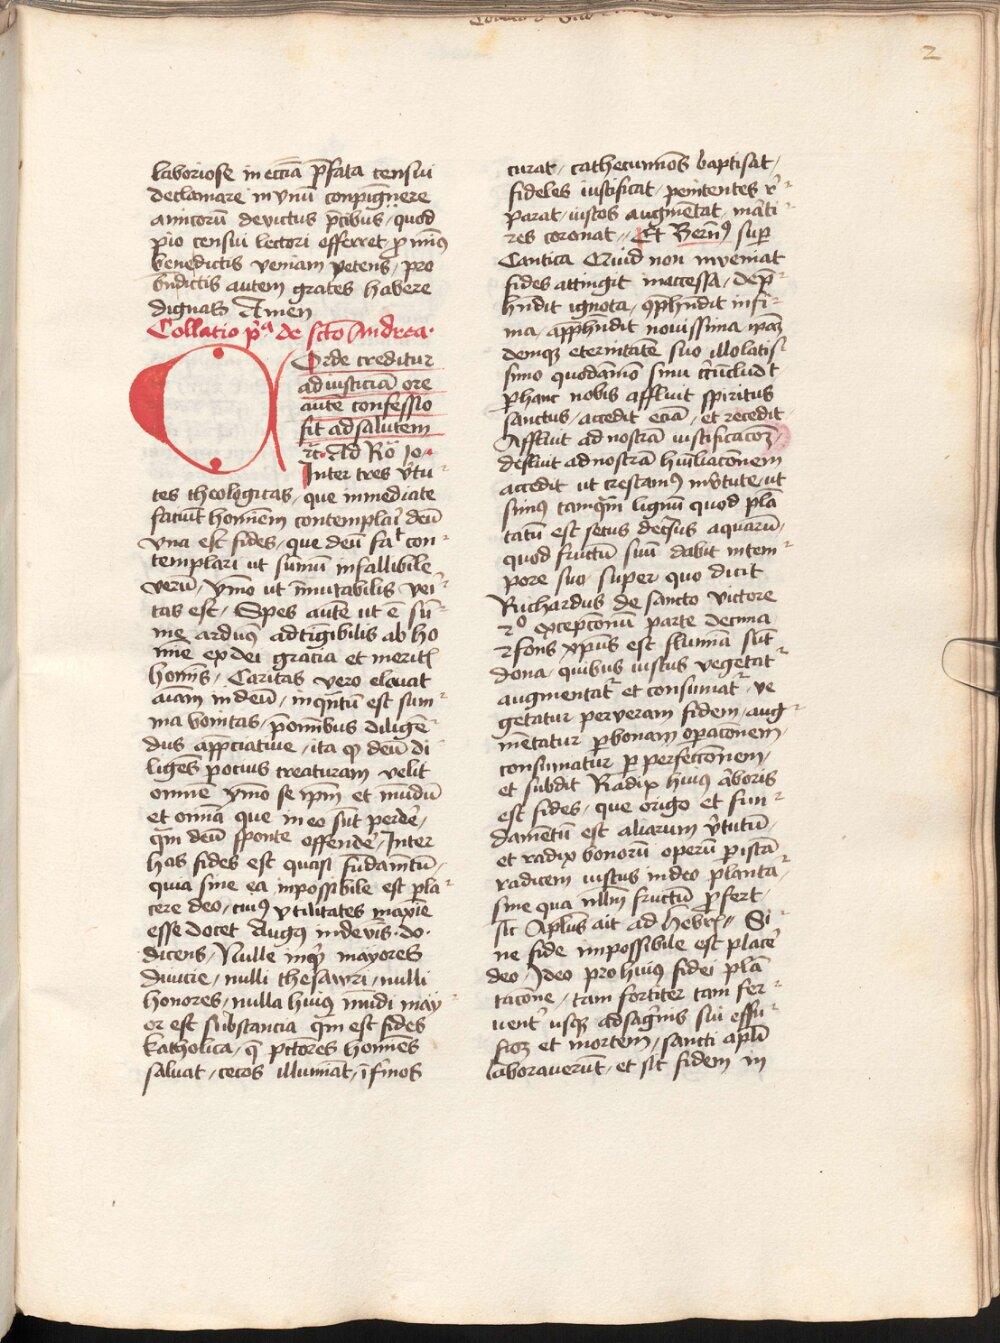 2
laboriose in eccīa p̄fata censui
declamare in vnū conpīgnere
amicorū devictus p̄cibus / quod
pio censui lectori offerret p̱ min9
benedictis veniam petens / pro
bn̄dictis autem grates habere
dignas Amen
Collatio p̄ᵃ de scto Andrea·
Corde creditur
ad iusticiā ore
autē confessio
fit ad salutem
Ad Ro 10·
Inter tres v̄tu
tes theologicas / que inmediate
faciūt hominem contemplari deū
vna est fides / que deū fa͛t con
templari ut sumū infallibile
verū / ymo ut īmutabilis v̄i
tas est / Spes autē ut ē sū
me arduū adtīgibilis ab ho
mīe ex dei gracia et merit͛
homīs / Caritas vero elevat
aīam in deū / inq̄ntū est sum
ma bonitas / p̱ omībus diligē
dus app̄ciative / ita ꝙ deū di
ligēs p̱ocius creaturam velit
omnē ymo se ip̄m et mūdū
et omīa que in eo sūt perde͛
q̄m deū sponte offende͛ / Inter
has fides est quasi fūdam̄tū
quia sine ea inpossibile est pla
cere deo / cui9 vtilitates maxīe
esse docet Aug9 in de v̄is · do ·
dicens / Nulle inq͛ mayores
divicie / nulli thesawri / nulli
honores / nulla hui9 mūdi may
or est substancia q̄m est fides
katholica / q̄ p̄ctores homīes
salvat / cecos illumīat / īfirmos
curat / cathecuminōs baptisat /
fideles iustificat / penitentes r͛
parat / iustos augmētat / m̄ti
res coronat // Et Bern̄9 sup̱
Cantica Quid non inveniat
fides attingit inaccessa / dep̄
hn̄dit ignota / ꝯp̄hn̄dit infi
nia / app̄hn̄dit novissima ip̄aꝫ
demqꝫ eternitatē suo illo latis
simo quodamō sinu cīrcūclud͛t
p̱ hanc nobis affluit spiritus
sanctus / accedit eciā / et recedit
Affluit ad nostrā iustificacōꝫ
defluit ad nostrā humīliacōnem
accedit ut crescam9 in v̄tute / ut
sim9 tamq̄m lignū quod plā
tatū est secus decūrsus aquarū /
quod fructū suū dabit in tem
pore suo super quo dicit
Richardus de sancto victore
2° excepcōnū parte decima
fons xp̄us est flumīa sūt
dona / quibus iustus vegetat͛
augmentat͛ et consumat͛ / ve
getatur per veram fidem / aug
mētatur p̱ bonam op̱acōnem /
consumatur p̱ perfeccōnem /
et subdit Radix hui9 a͛boris
est fides / que origo et fun
damētū est aliarum v̄tutū
et radix bonorū operū p̱ istā
radicem iustus in deo planta
sine qua nllm̄ fructū p̱fert /
sic Apl̄us ait ad hebr͛ // Si
ne fide impossibile est place͛
deo / Ideo pro hui9 fidei plā
tacōne / tam fortiter tam fer
vent͛ usqꝫ ad sāg͛nis sui effu
sioꝫ et mortem / sancti apl̄i
laboraverūt / et sic fidem in